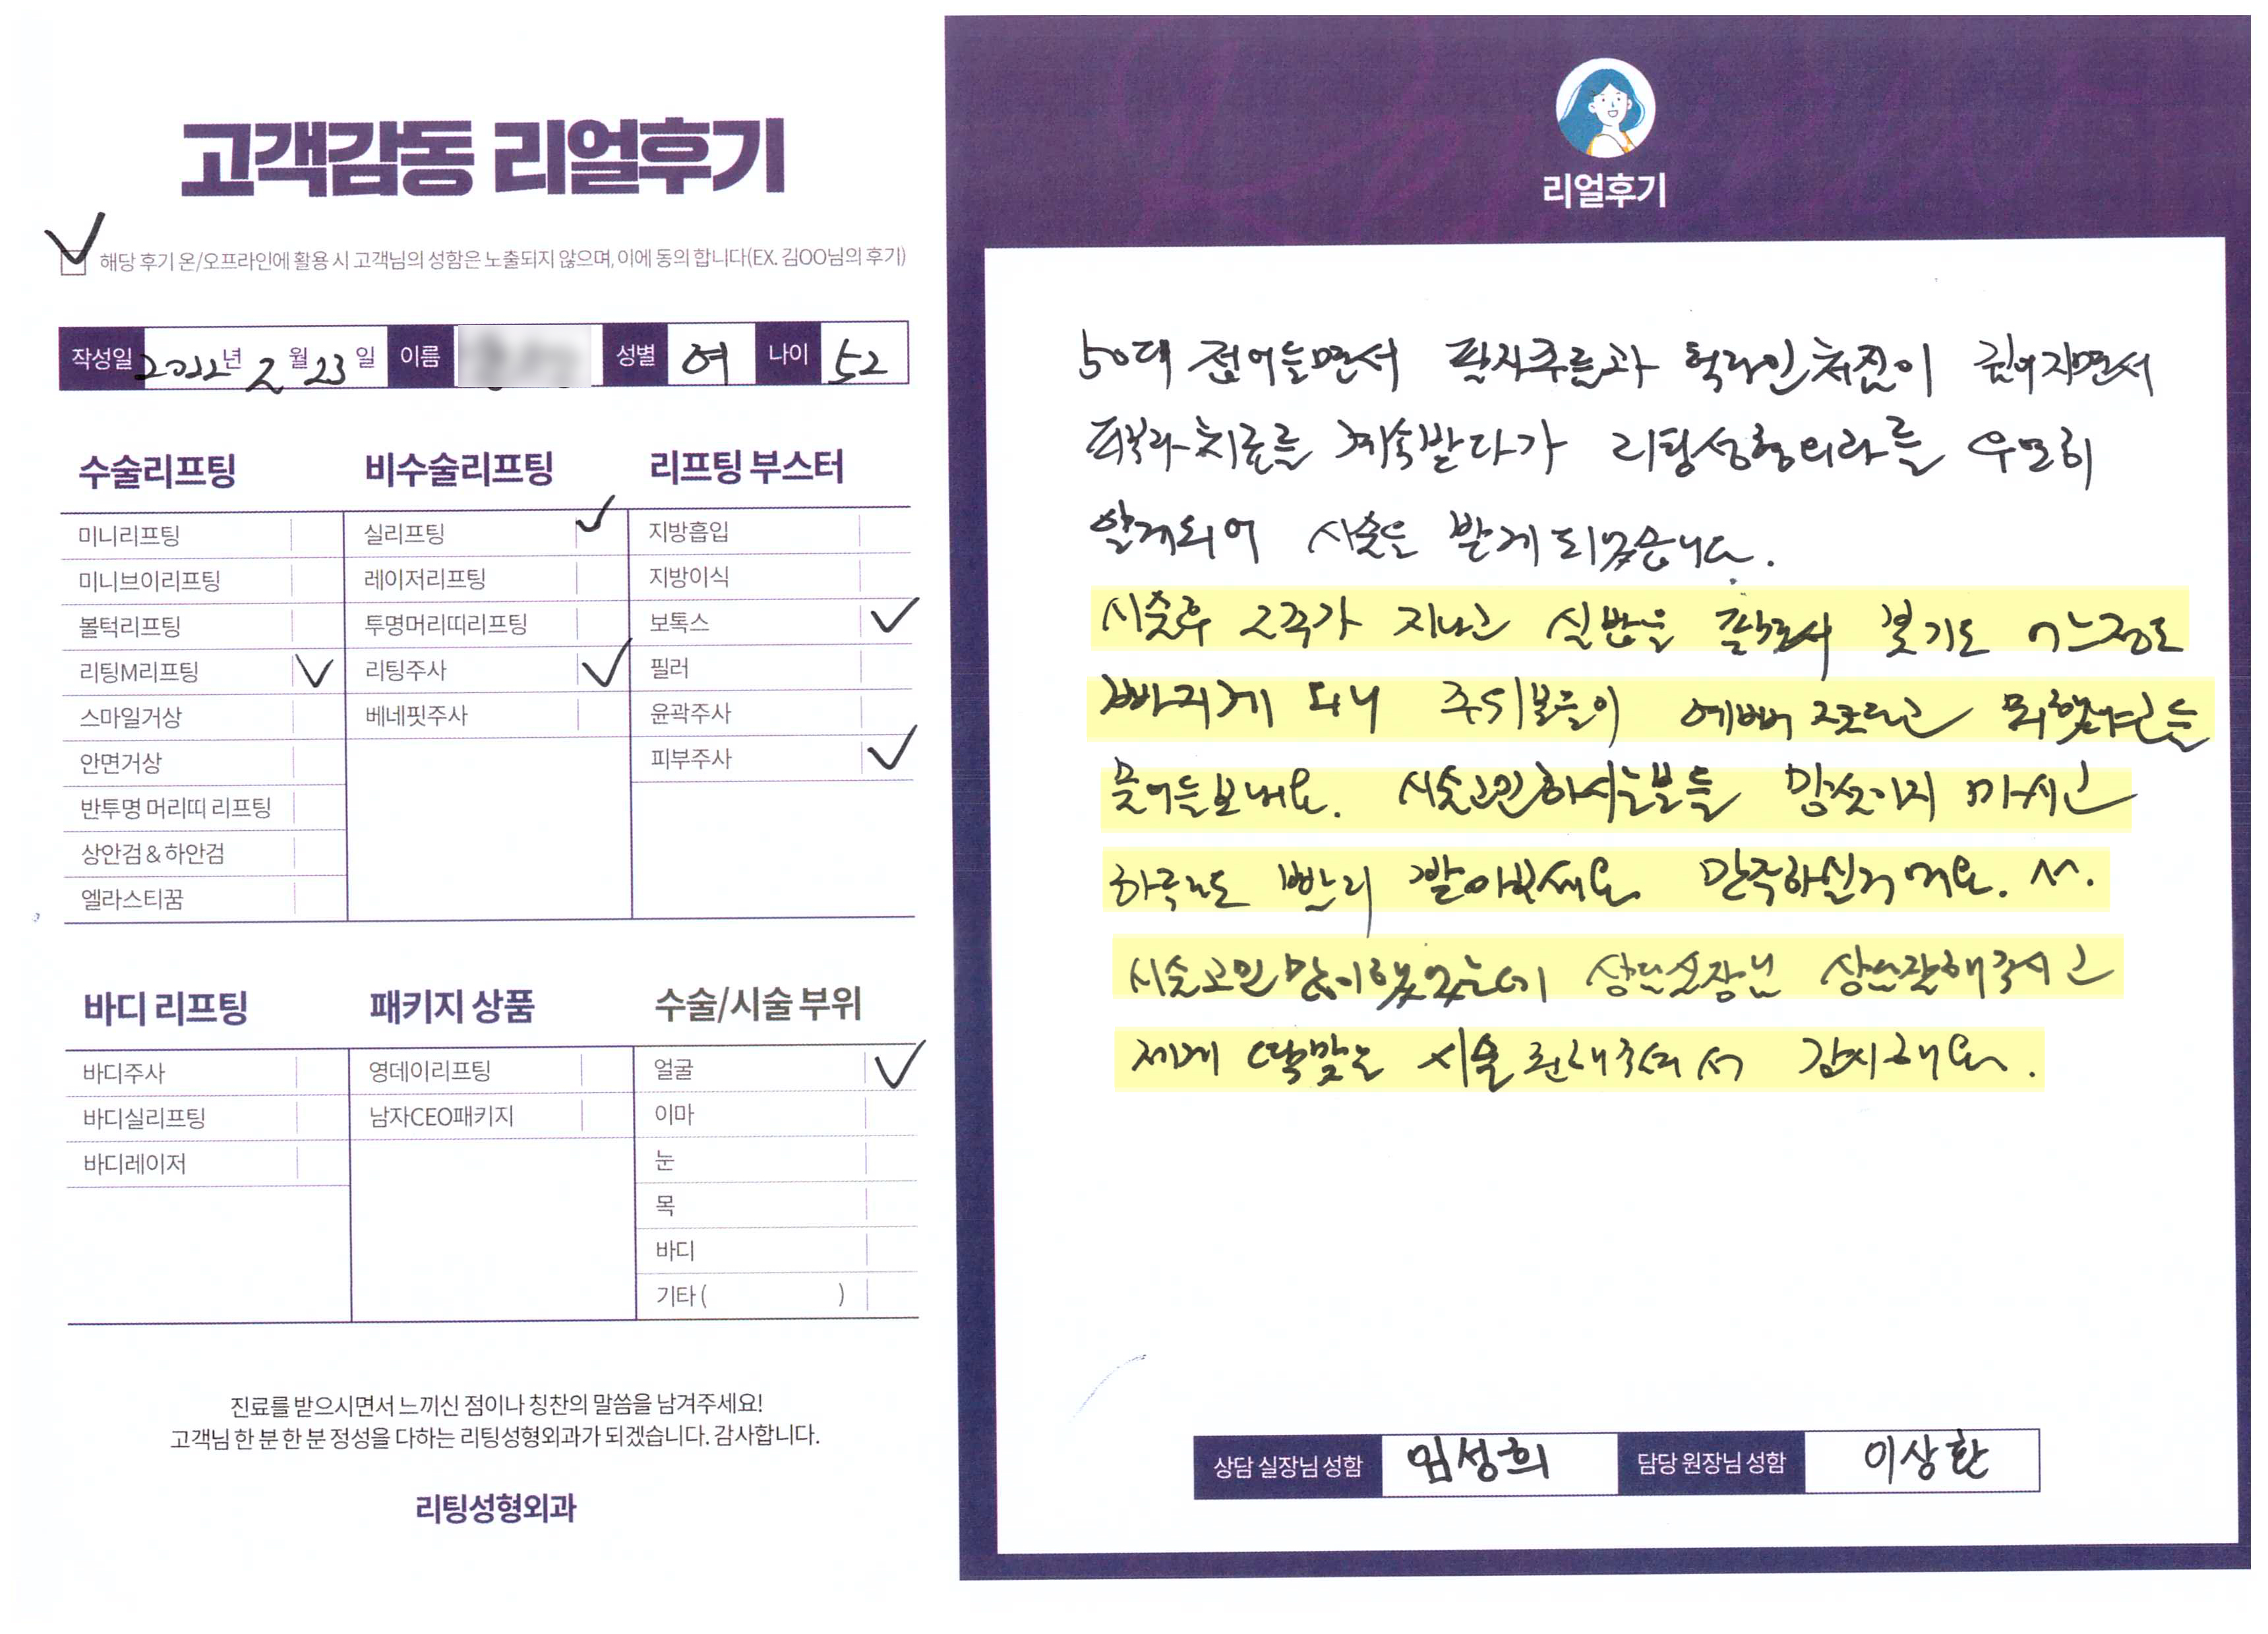 고객감동 리얼후기
해당 후기 온/오프라인에 활용 시 고객님의 성함은 노출되지 않으며, 이에 동의 합니다(EX. 김OO님의 후기)
작성일 2022년 2월 23일 이름 성별 여 나이 52
수술리프팅
미니리프팅
미니브이리프팅
볼턱리프팅
리팅M리프팅
스마일거상
안면거상
반투명 머리띠 리프팅
상안검 & 하안검
엘라스티꿈
비수술리프팅
실리프팅
레이저리프팅
투명머리띠리프팅
리팅주사
베네핏주사
리프팅 부스터
지방흡입
지방이식
보톡스
필러
윤곽주사
피부주사
바디 리프팅
바디주사
바디실리프팅
바디레이저
패키지 상품
영데이리프팅
남자CEO패키지
수술/시술 부위
얼굴
이마
눈
목
바디
기타 ( )
진료를 받으시면서 느끼신 점이나 칭찬의 말씀을 남겨주세요!
고객님 한 분 한 분 정성을 다하는 리팅성형외과가 되겠습니다. 감사합니다.
리팅성형외과
리얼후기
50대 접어들면서 팔자주름과 턱라인처짐이 깊어지면서
피부과치료를 계속받다가 리팅성형외과를 우연히
알게되어 시술을 받게되었습니다.
시술후 2주가 지나고 실밥을 풀고서 붓기도 어느정도
빠지게 되니 주위분들이 예뻐졌다고 뭐했냐고들
물어들보네요. 시술고민하시는분들 망설이지 마시고
하루라도 빨리 받아보세요 만족하실거예요. ^^.
시술고민 많이했었는데 상담실장님 상담잘해주시고
제게 딱맞는 시술 권해주셔서 감사해요.
상담 실장님 성함 임성희 담당 원장님 성함 이상환